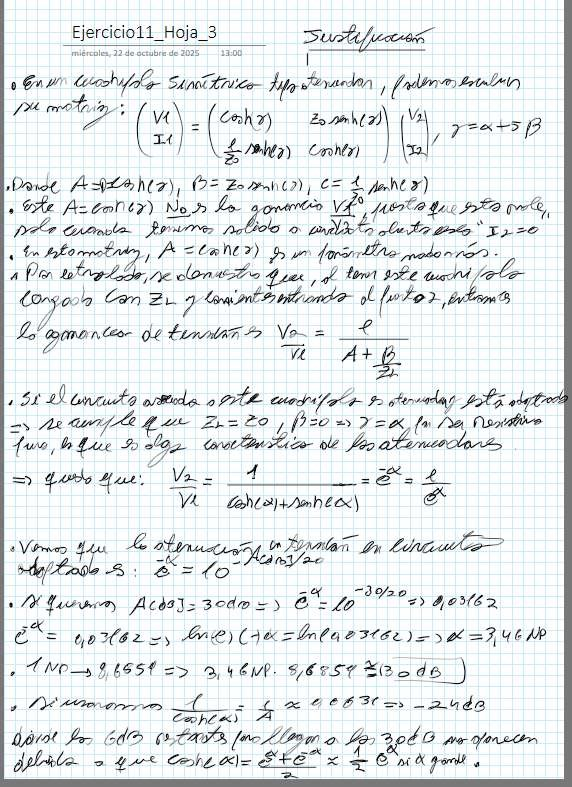 Ejercicio11_Hoja_3
miércoles, 22 de octubre de 2025 13:00
Justificación
• En un cuadripolo simétrico tipo atenuador, podemos escribir
su matriz: (V1 I1) = (cosh(γ) Zo senh(γ) 1/Zo senh(γ) cosh(γ)) (V2 I2), γ = α + j β
• Donde A = cosh(γ), B = Zo senh(γ), C = 1/Zo senh(γ)
• Este A = cosh(γ) No es la ganancia V1/V2, puesto que esto vale,
solo cuando tenemos salida a circuito abierto " I2=0
• En esta matriz, A = cosh(γ) es un parámetro nada más.
• Por otro lado, se demuestra que, al tener este cuadripolo
cargado con ZL y corrientes entrando al puerto 2, entonces
la ganancia de tensión es V2/V1 = 1/(A + B/ZL)
• Si el circuito a este cuadripolo atenuador está adaptado
=> se cumple que ZL = Zo, β=0 => γ = α, por ser resistivo
puro, lo que es algo característico de los atenuadores
=> puesto que: V2/V1 = 1/(cosh(α)+senh(α)) = e^-α = 1/e^α
• Vemos que la atenuación en tensión en circuitos
adaptados es: e^-α = 10^-A[dB]/20
• Si queremos A[dB] = 30dB => e^-α = 10^-30/20 => 0,03162
e^-α = 0,03162 => ln(e) (+α = ln(0,03162) => α = 3,46 NP
• 1 NP → 8,6859 => 3,46 NP · 8,6859 ≈ 30 dB
• Si usaramos 1/cosh(α) = 1/A ≈ 0,0631 => -24dB
Donde los 6dB restantes para llegar a los 30dB no aparecen
debido a que cosh(α) = (e^α + e^-α)/2 ≈ 1/2 e^α si α grande.